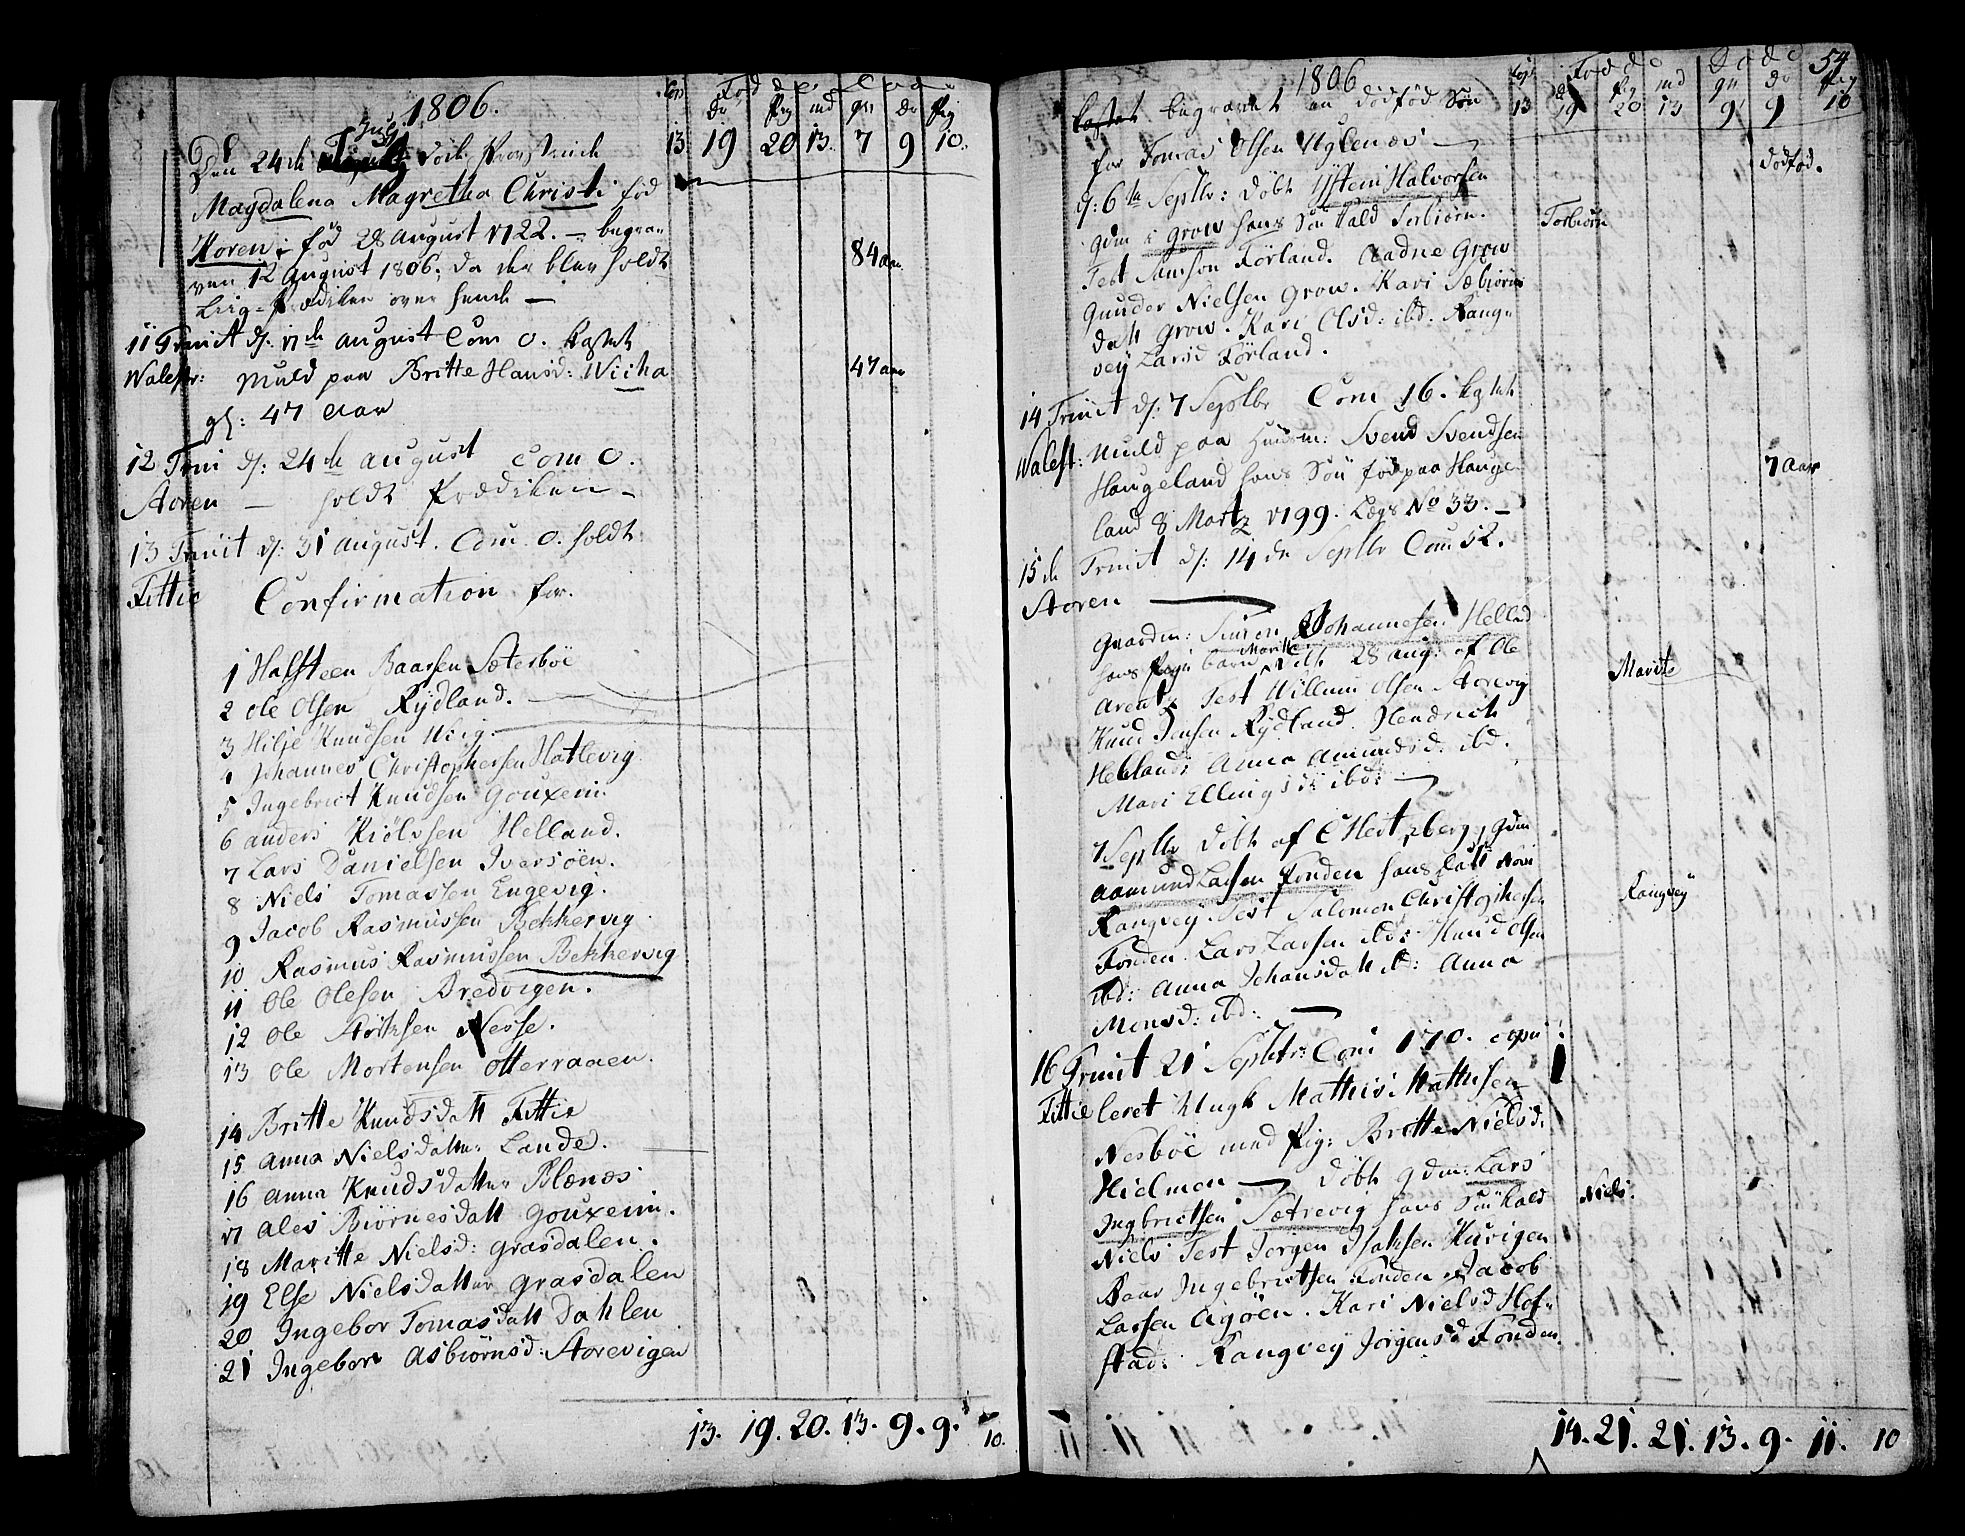 1806.
Cop Fødde Døde
dr pig md qu dr pig
13. 19 20 13. 7 9 10.
July
Den 24de døde
Magdalena Magretha Christi fød
Koren; fød 28 August 1722. — begra-
ven 12 August 1806; da der blev holdt
84 aar
Liig-Prædiken over hende —
11 Trinit d: 17de August Com 0. kastet
Walestr: Muld paa Britte Hansd: Wicha
47 aar
gl: 47 Aar
12 Trini d: 24de August Com 0.
Storen — holdt Prædiken —
13 Trinit d: 31 August. Com. 0. holdt
Fittie Confirmation for.
1 Halsteen Baarsen Sæterböe
2 Ole Olsen Rydland.
3 Hilje Knudsen Wiig.
4 Johannes Christophersen Hatlevig
5 Ingebrict Knudsen Gouxeim
6 Anders Kiölvsen Helland.
7 Lars Danielsen Iversöen.
8 Niels Tomassen Engevig.
9 Jacob Rasmussen Bekkervig
10 Rasmus Rasmussen Bekkervig
11 Ole Olesen Bredvigen.
12 Ole Nesse.
13 Ole Mortensen Otterraaen.
14 Britte Knudsdatt Fittie
15 Anna Nielsdatter Lande.
16 Anna Knudsdatter Blænæs
17 Ales Biörnesdatt Gouxeim.
18 Maritte Nielsd: Grasdalen.
19 Else Nielsdatter Grasdalen
20 Ingebor Tomasdatt Dahlen
21 Ingebor Asbiörnsd: Storevigen
13. 19. 20. 13. 9. 9. 10.
54
1806
Cop Fødde Døde
dr pig md qu dr pig
13 19 20 13 9 9 10
kastet begravet en dødfød Søn
for Tomas Olsen Uglenæs —
dødfød.
d: 6te Septbr: döbt Østein Halvorsen
gdm: Grow hans Søn kald Torbiörn.
Torbiörn
Test Samson Förland. Aadne Grow
Gunder Nielsen Grow. Kari Sæbiörns
datt Grow. Kari Olsd: ibd. Rang-
vey Larsd Förland.
14 Trinit d: 7 Septbr Com 16. kastet
Walest: Muld paa Huusm: Svend Svendsen
7 Aar
Haugeland hans Søn fød paa Hauge
land 8 Martz 1799. Lægs No 33. —
15de Trinit d: 14de Septbr Com 52.
Storen —
Gaardm: Simon Johannesen Helland
hans Pige barn Maritte döbt 28 aug: af Ole
Maritte
Arentz Test Willum Olsen Storevig
Knud Jensen Rydland. Hendrich
Helland: Anna Amundsd: ibd.
Mari Ellingsd: ibd: —
7 Septbr döbt af C Hertzberg, gdm
Aamund Larsen Fonden hans datt
Rangvey Test Salomon Christophersen
Rangvey
Fonden. Lars Larsen ibd: Knud Olsen
ibd: Anna Johansdatt ibd: Anna
Monsd: ibd: —
16 Trinit 21 Septbr: Com 170. copu
1
Fittie leret Ungk Mathis Mathisen
Nesböe med Pig: Britte Nielsd:
Hielmen — döbt gdm: Lars
Ingbrictsen Sætrevig hans Søn kald
Niels.
Niels Test Jørgen Isaksen Kurigen
Baar Ingebrictsen Fonden. Jacob
Larsen Agöen. Kari Nielsd Hof-
stad: Rangvey Jörgensd Fonden.
14. 21. 21. 13. 9. 11. 10